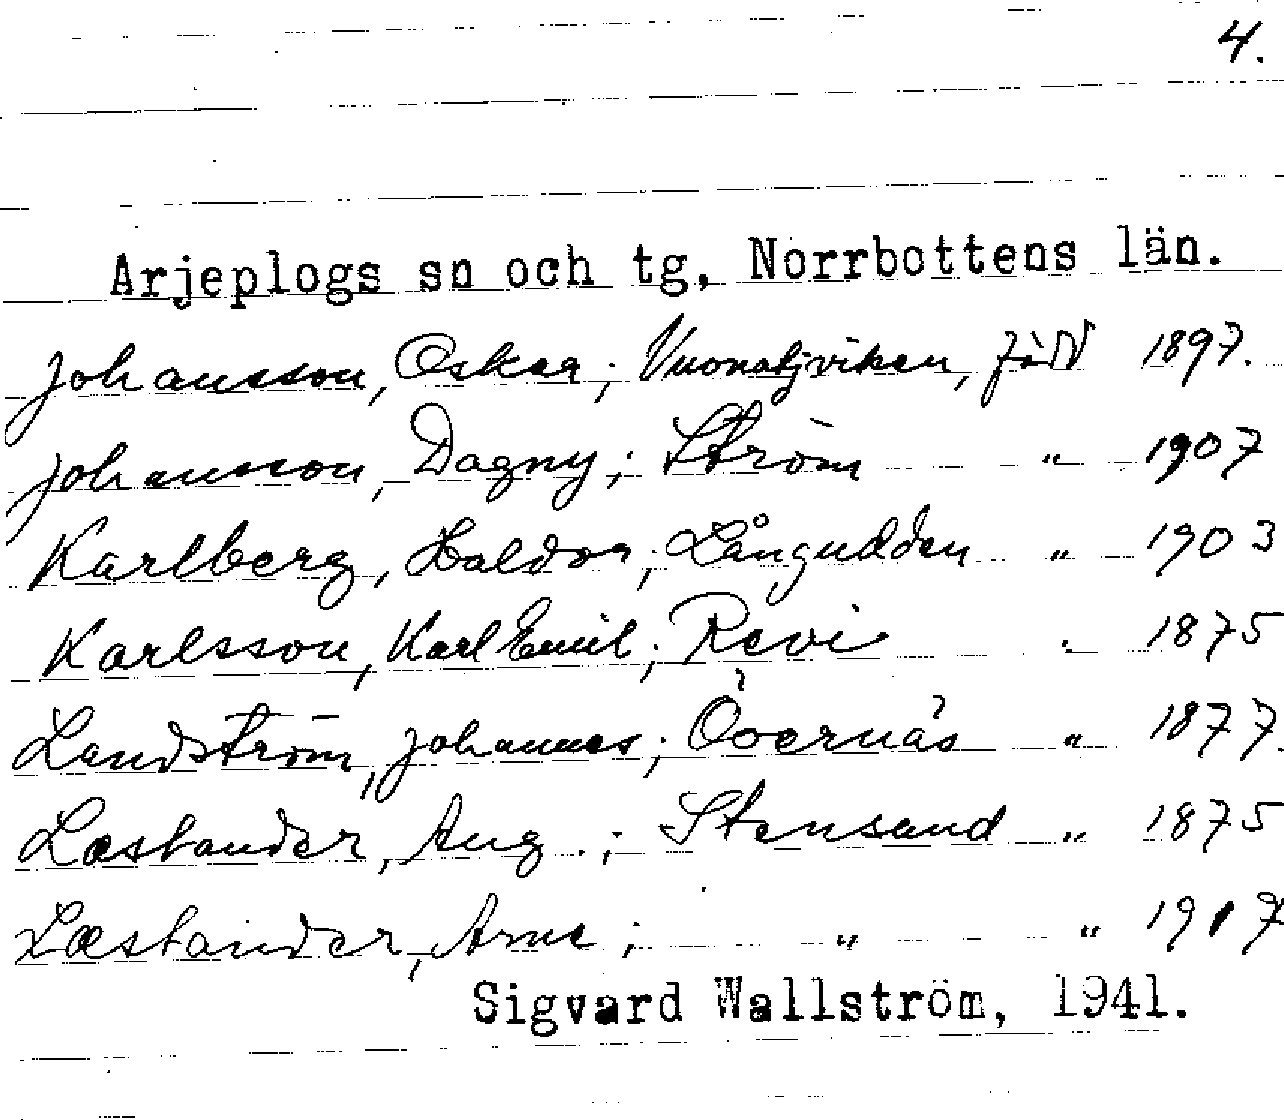 4.
Arjeplogs sn och tg, Norrbottens län.
Johansson, Oskar; Vuonatjviken, född 1897.
Johansson, Dagny; Ström " 1907
Karlberg, Haldor; Långudden " 1903
Karlsson, Karl Emil; Revi " 1875
Landström, Johannes; Övernäs " 1877.
Læstander, Aug.; Stensund " 1875
Læstander, Arne; " " 1917
Sigvard Wallström, 1941.